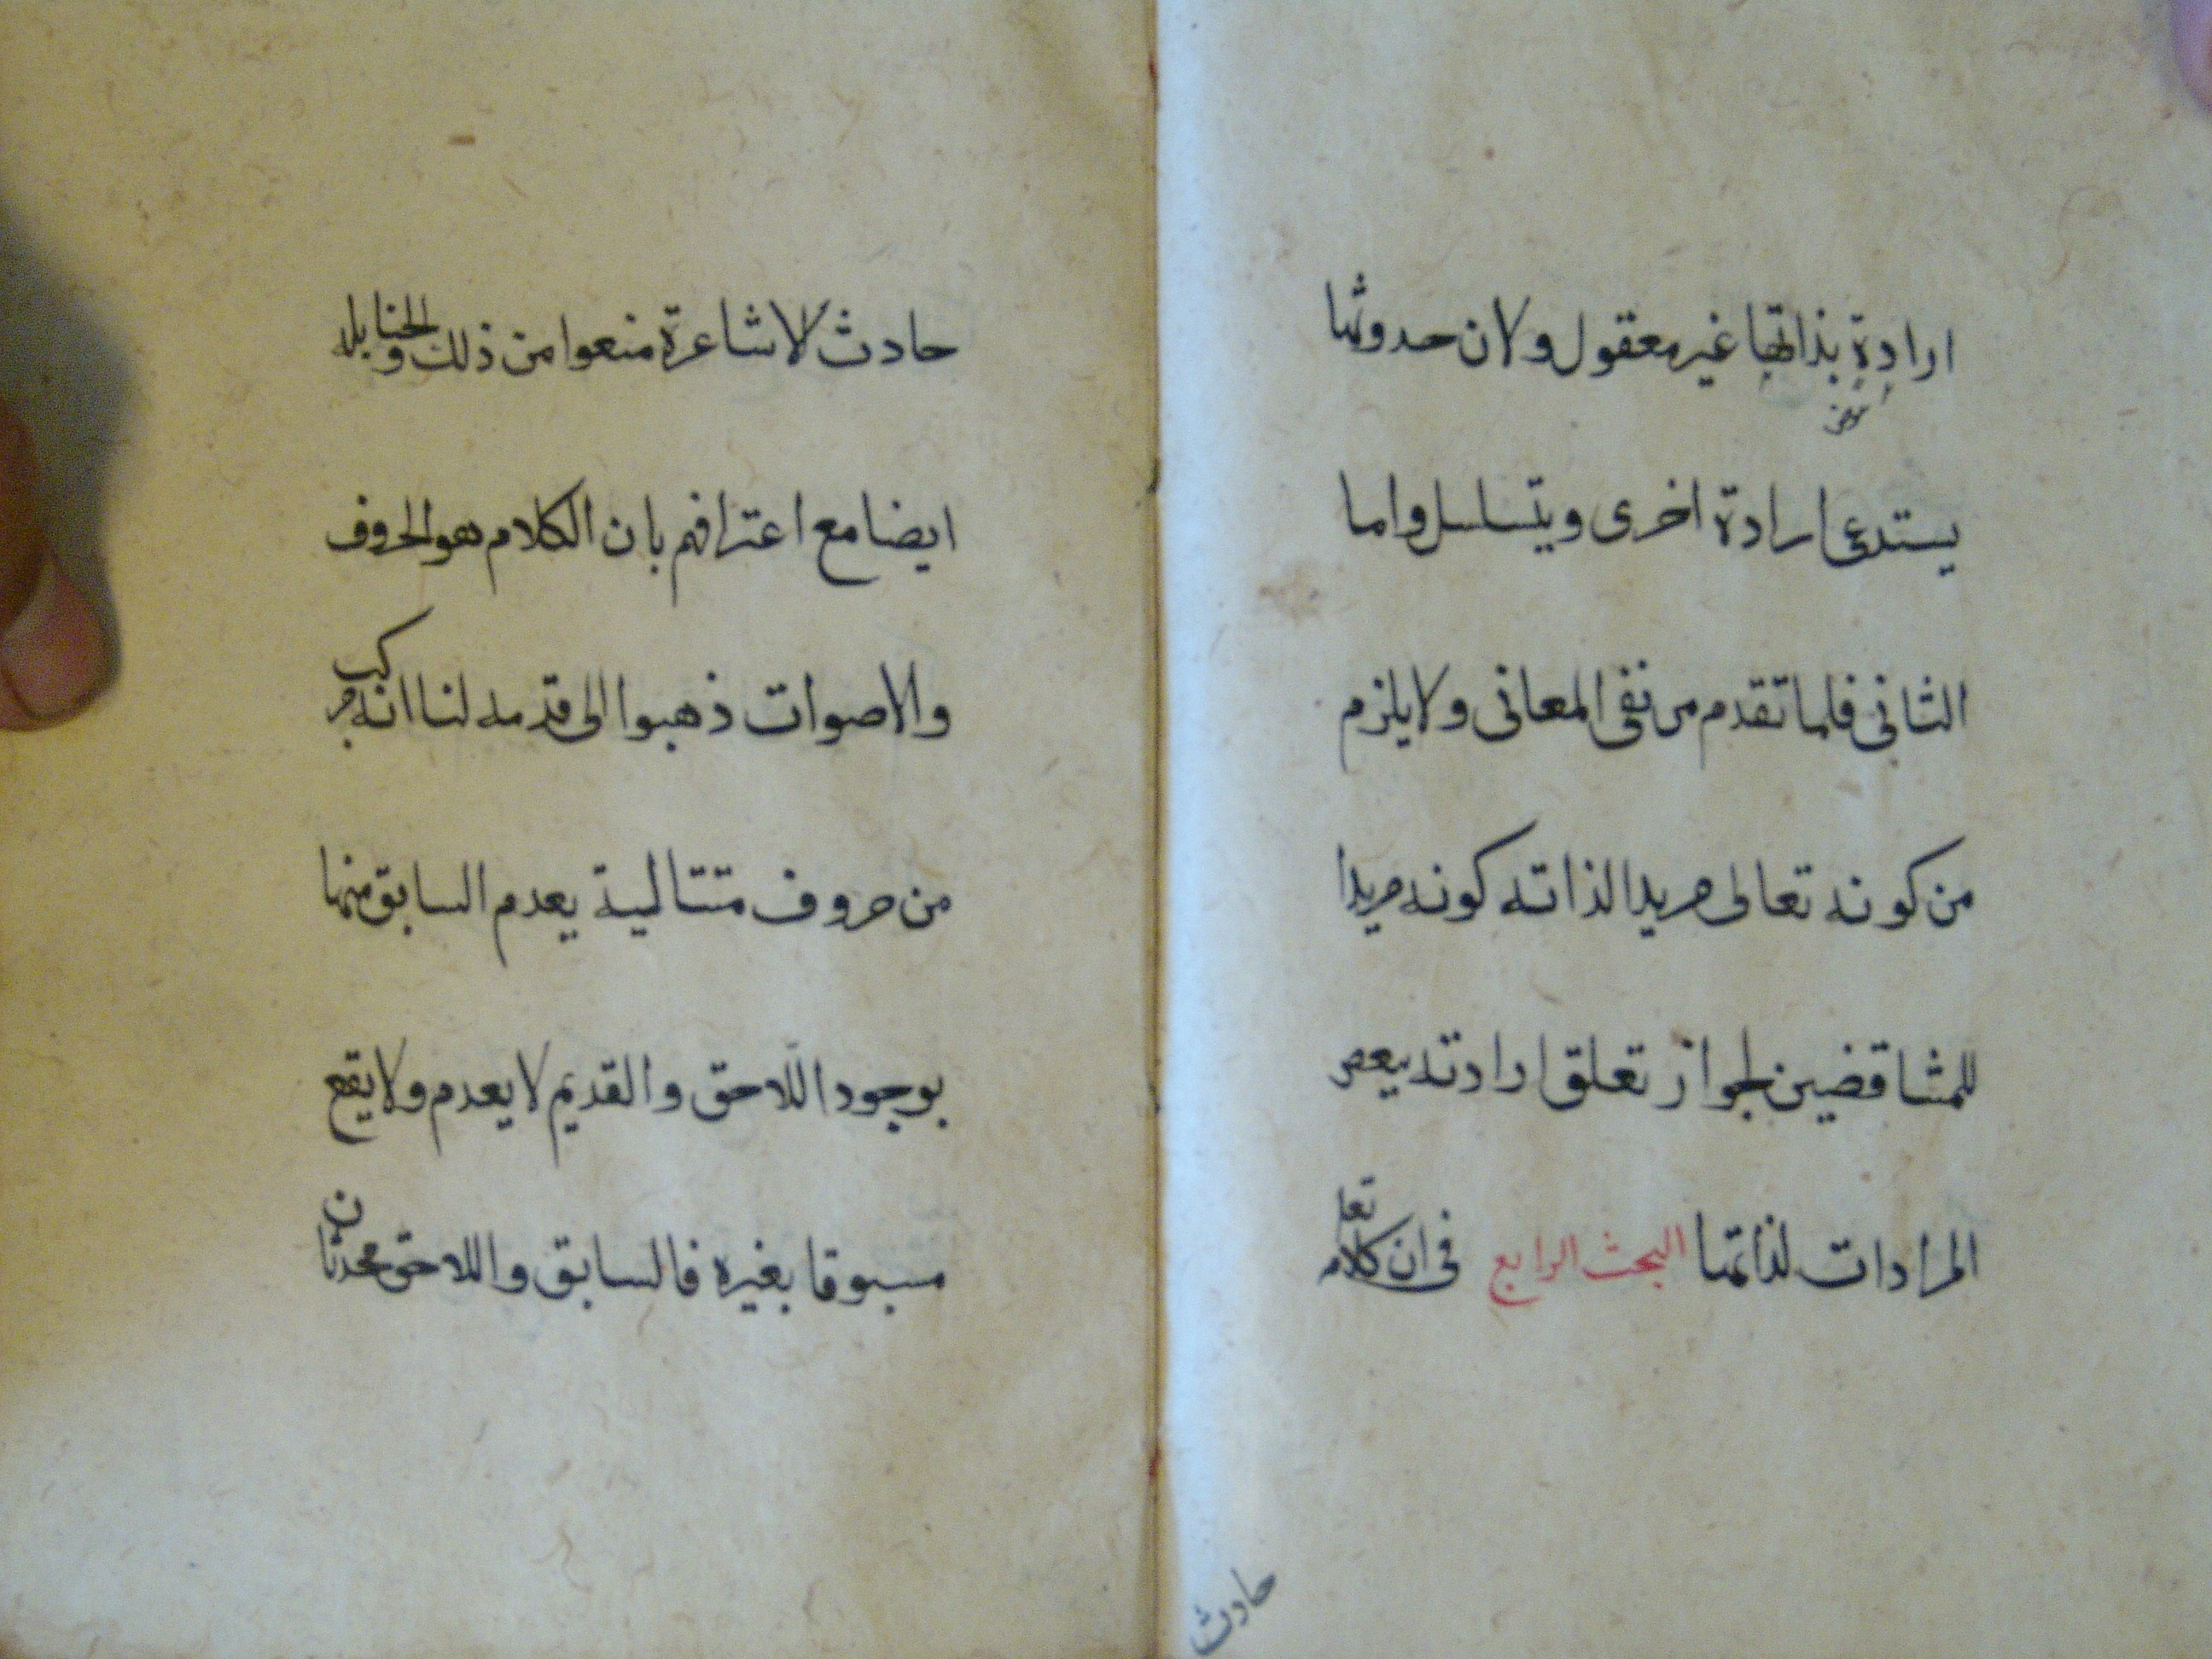 ارادة بذاتها غير معقول ولان حدوثها
يستدعى ارادة اخرى ويتسلسل واما
الثانى فلما تقدم من نفى المعانى ولا يلزم
من كونه تعالى مريدا لذاته كونه مريدا
لجواز تعلق ارادته ببعض
المرادات لذاتها البحث الرابع فى ان كلامه تعا
حادث
حادث الاشاعرة منعوا من ذلك والحنابله
ايضا مع اعترافهم بان الكلام هو الحروف
والاصوات ذهبوا الى قدمه لنا انه مركب
من حروف متتالية يعدم السابق منها
بوجود اللاحق والقديم لا يعدم ولا يقع
مسبوقا بغيره فالسابق واللاحق محدثان